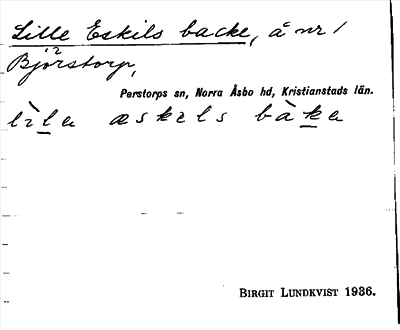 Lille Eskils backe, å nr 1
Björstorp,
Perstorps sn, Norra Åsbo hd, Kristianstads län.
lìlɐ æskɪls bàkɐ
BIRGIT LUNDKVIST 1936.